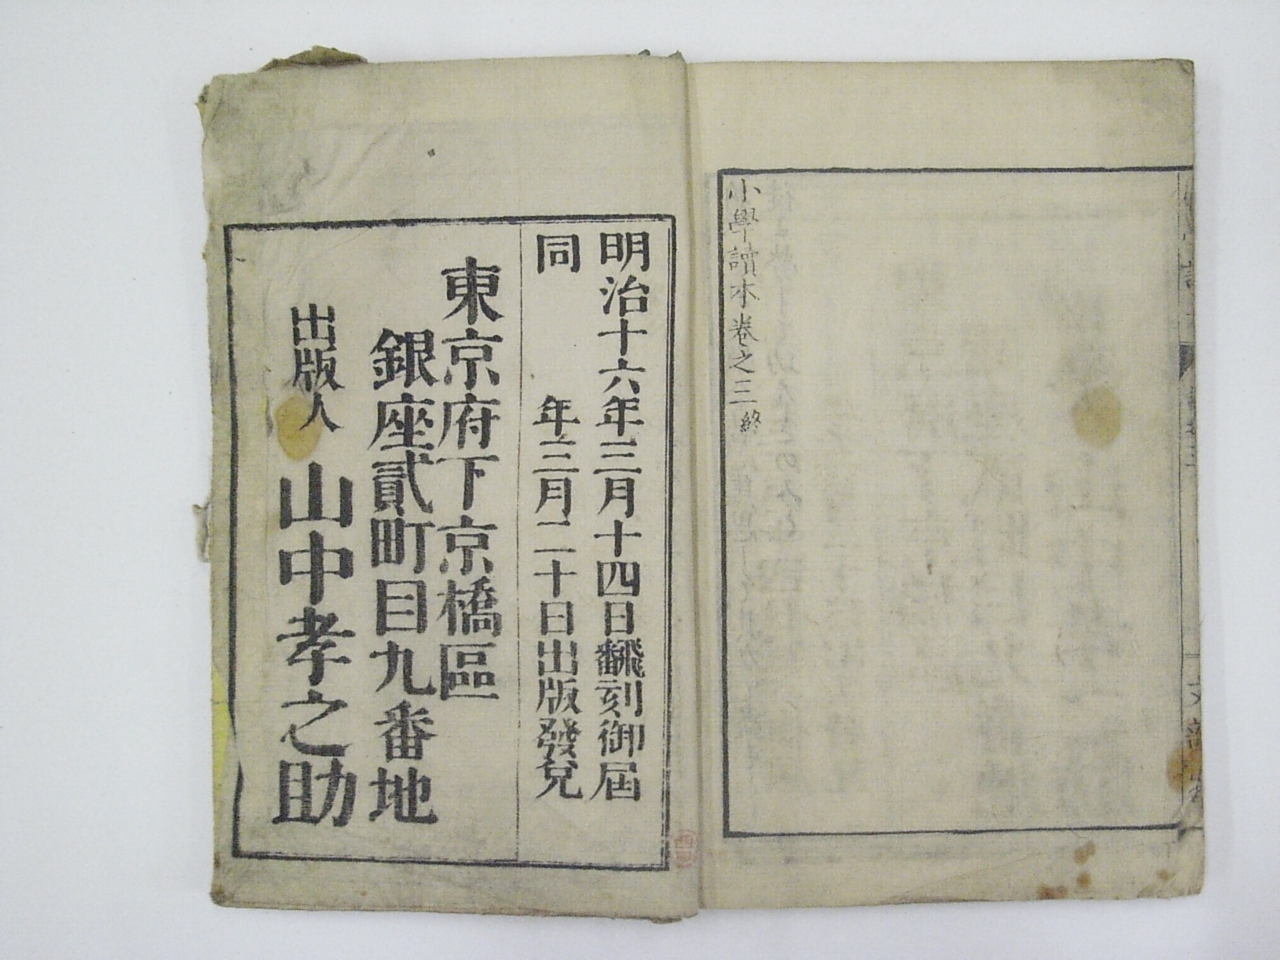 小學讀本卷之三終
明治十六年三月十四日飜刻御屆
同年三月二十日出版發兌
東京府下京橋區
銀座貳町目九番地
出版人 山中孝之助